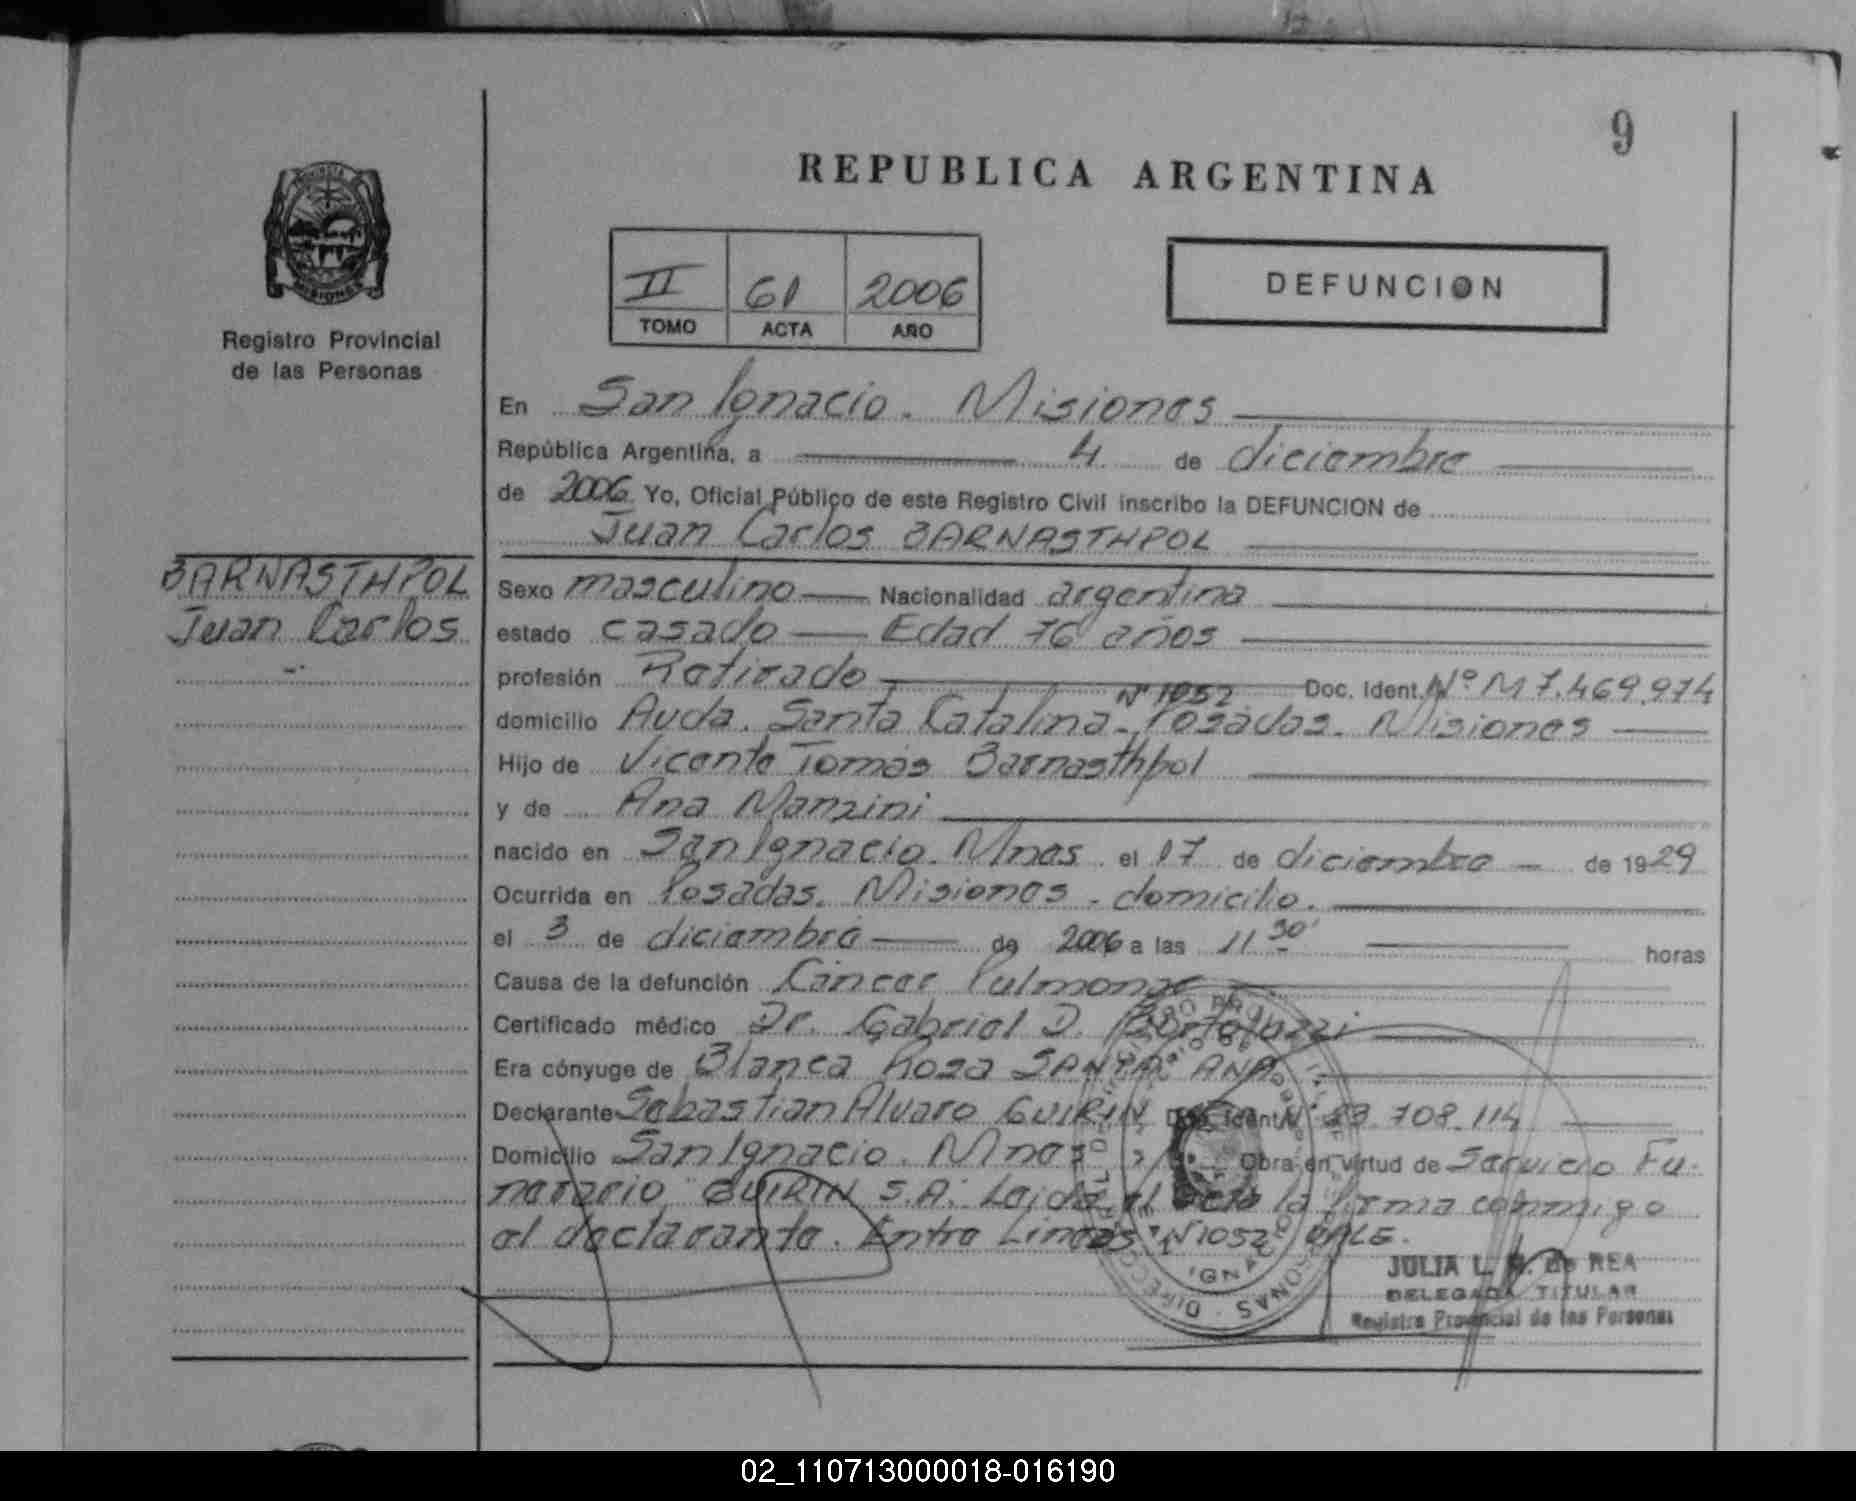 9
REPUBLICA ARGENTINA
II 61 2006
TOMO ACTA AÑO
DEFUNCION
MISIONES
Registro Provincial
de las Personas
En San Ignacio. Misiones
República Argentina, a 4 de diciembre
de 2006 Yo, Oficial Público de este Registro Civil inscribo la DEFUNCION de
Juan Carlos BARNASTHPOL
BARNASTHPOL
Juan Carlos
Sexo masculino Nacionalidad argentina
estado casado Edad 76 años
profesión Retirado Doc. Ident. Nº M 7.469.974
Nº 1052
domicilio Avda. Santa Catalina - Posadas. Misiones
Hijo de Vicente Tomás Barnasthpol
y de Ana Manzini
nacido en San Ignacio. Mnes el 17 de diciembre de 1929
Ocurrida en Posadas. Misiones - domicilio.
el 3 de diciembre de 2006 a las 11 30' horas
Causa de la defunción Cáncer Pulmonar
Certificado médico Dr. Gabriel D. Bortoluzzi
Era cónyuge de Blanca Rosa SANTA ANA
Declarante Sebastian Alvaro GUIRIN Doc. Ident. Nº 23.708.114
Domicilio San Ignacio. Mnes Obra en virtud de Servicio Fu-
nerario GUIRIN S.A. Leida el acta la firma conmigo
el declarante. Entre Lineas "Nº 1052" VALE.
JULIA L. de REA
DELEGADA TITULAR
Registro Provincial de las Personas
02_110713000018-016190